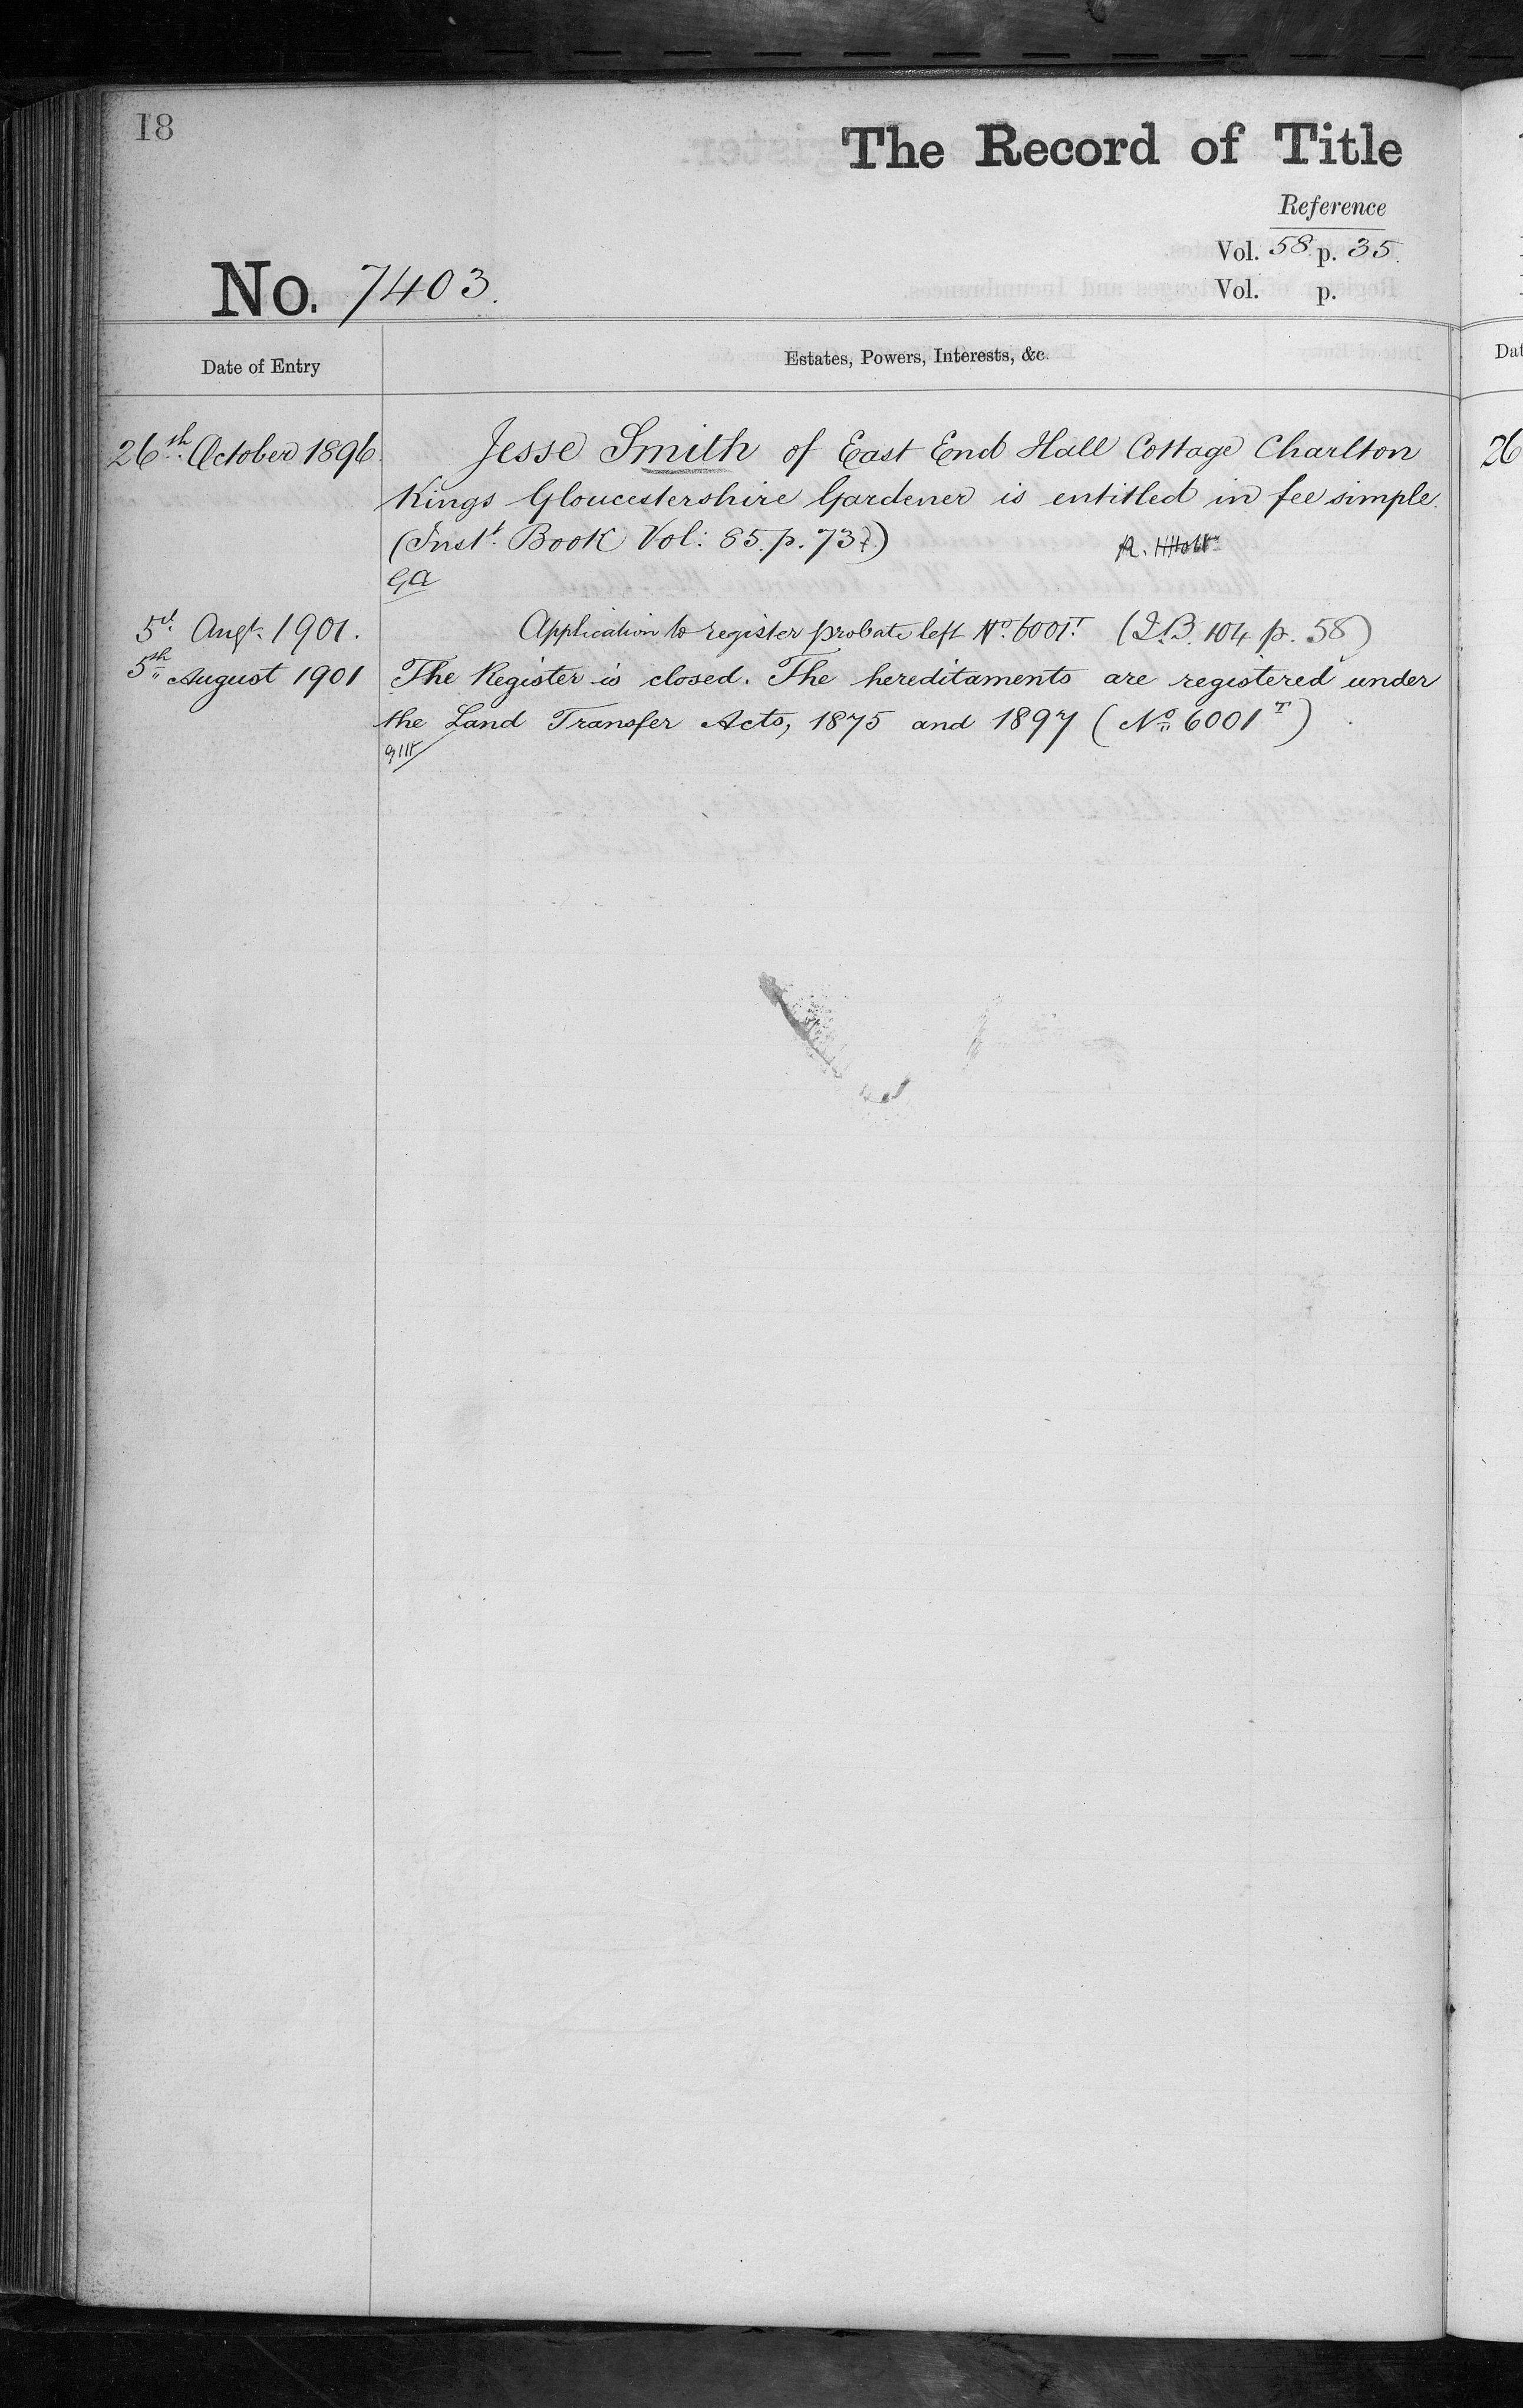 18
The Record of Title
Reference
Vol. 58 p. 35.
No. 7403.
Vol. p.
Date of Entry
Estates, Powers, Interests, &c.
26th October 1896. Jesse Smith of East End Hall Cottage Charlton
Kings Gloucestershire Gardener is entitled in fee simple.
(Inst. Book Vol: 85. p. 737.)
GA
5th Augt. 1901. Application to register probate left No. 6001T (I.B. 104 p. 58)
5th August 1901 The Register is closed. The hereditaments are registered under
the Land Transfer Acts, 1875 and 1897 (No. 6001T)
26